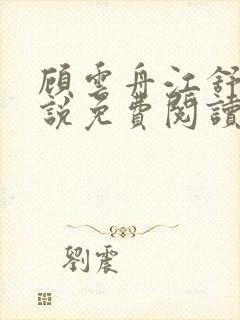 顧雲舟江舒
說免費閱讀
劉震